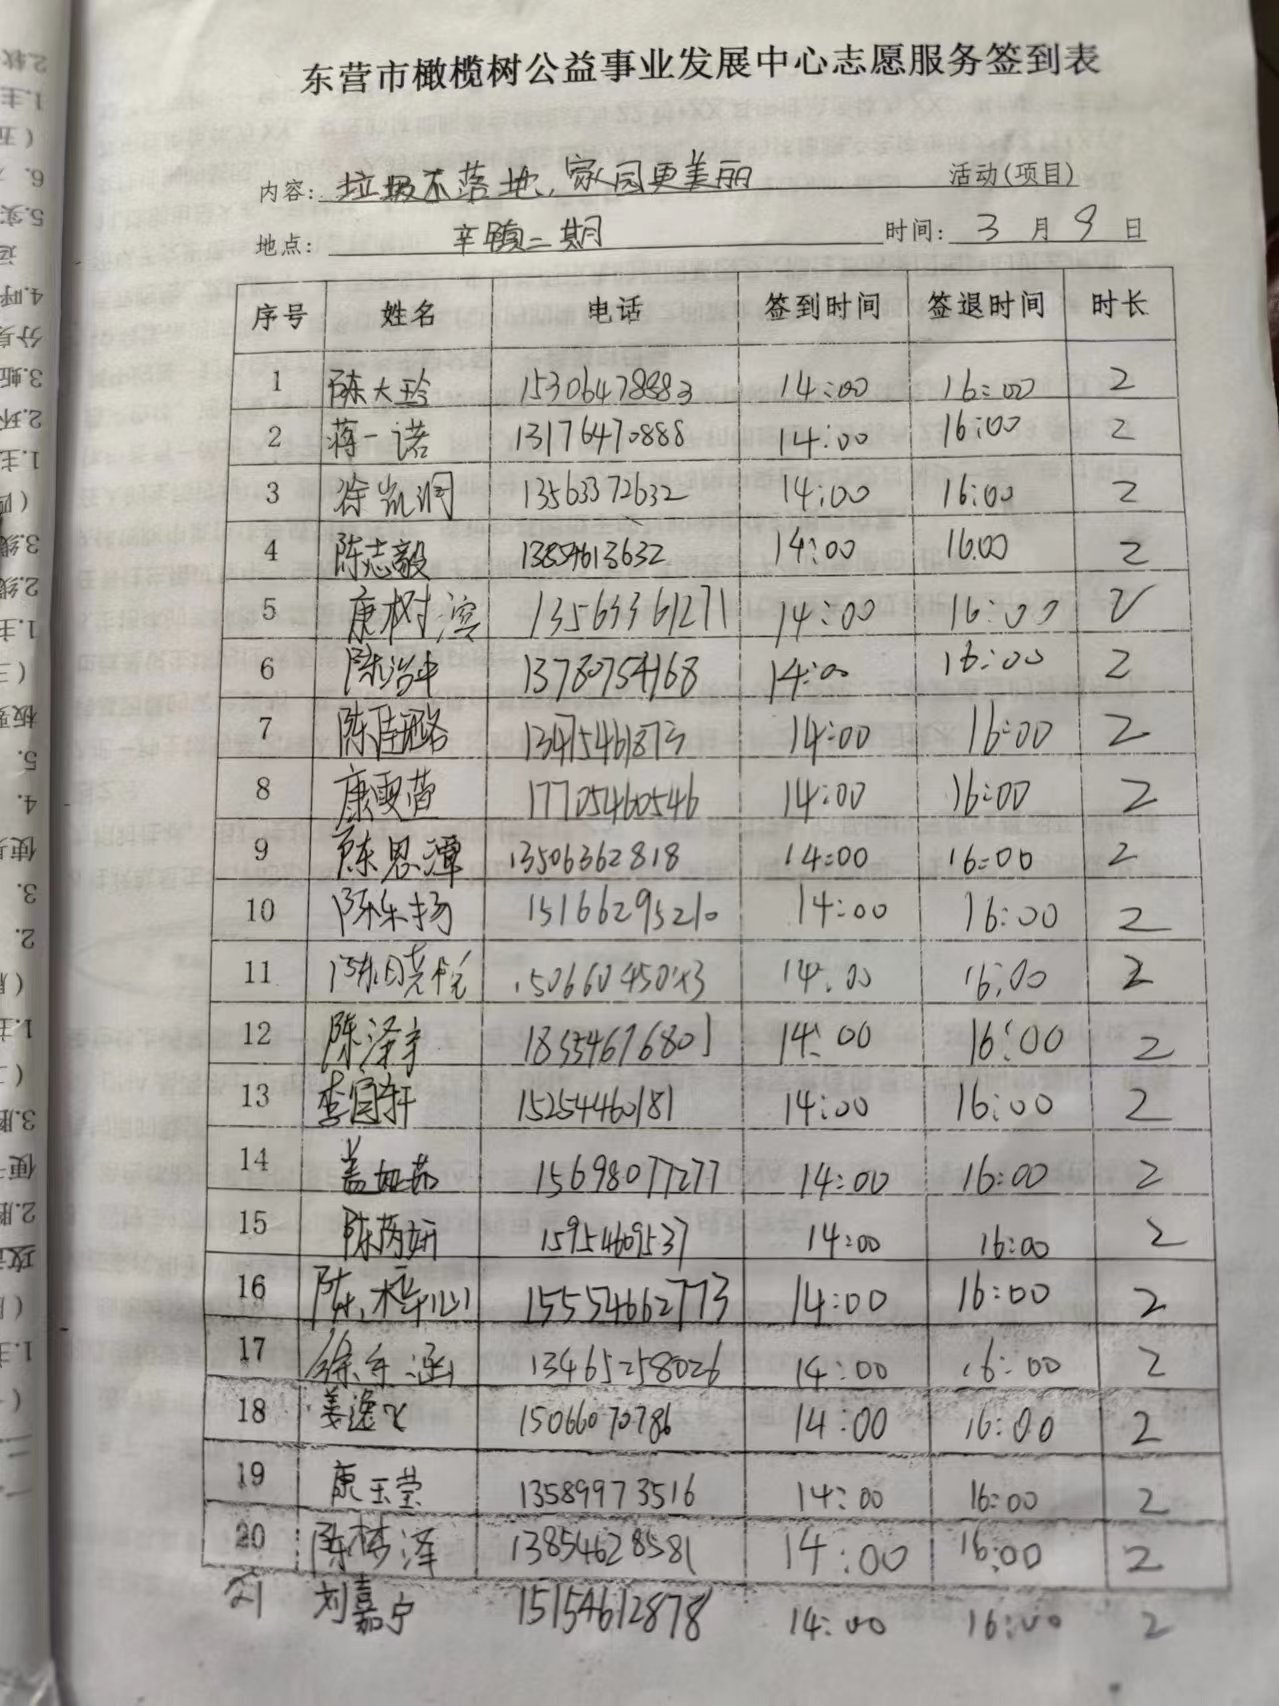 东营市橄榄树公益事业发展中心志愿服务签到表
内容：垃圾不落地，家园更美丽 活动(项目)
地点：辛镇二期 时间：3月9日
序号 姓名 电话 签到时间 签退时间 时长
1 陈大玲 15306478883 14:00 16:00 2
2 蒋一诺 13176470888 14:00 16:00 2
3 徐凯润 13563372632 14:00 16:00 2
4 陈志毅 13854613632 14:00 16:00 2
5 康树滨 13563361271 14:00 16:00 2
6 陈治中 13780754168 14:00 16:00 2
7 陈 13475461873 14:00 16:00 2
8 康雯萱 17705460546 14:00 16:00 2
9 陈思潭 13506362818 14:00 16:00 2
10 陈乐扬 15166295210 14:00 16:00 2
11 陈 14:00 16:00 2
12 陈泽宇 18354676801 14:00 16:00 2
13 李宜轩 15254460181 14:00 16:00 2
14 盖 15698077277 14:00 16:00 2
15 陈芮妍 1595469537 14:00 16:00 2
16 陈梓心 15554662773 14:00 16:00 2
17 徐 13465258026 14:00 16:00 2
18 姜逸飞 15066070786 14:00 16:00 2
19 康玉莹 13589973516 14:00 16:00 2
20 陈梦泽 13854628581 14:00 16:00 2
21 刘嘉宁 15154612878 14:00 16:00 2